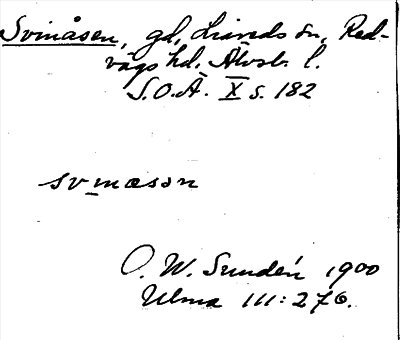 Svinåsen, gd, Liareds sn, Red-
vägs hd. Älvsb. l.
S.O.Ä. X s. 182
svinæsən
O. W. Sundén 1900
Ulma III: 276.